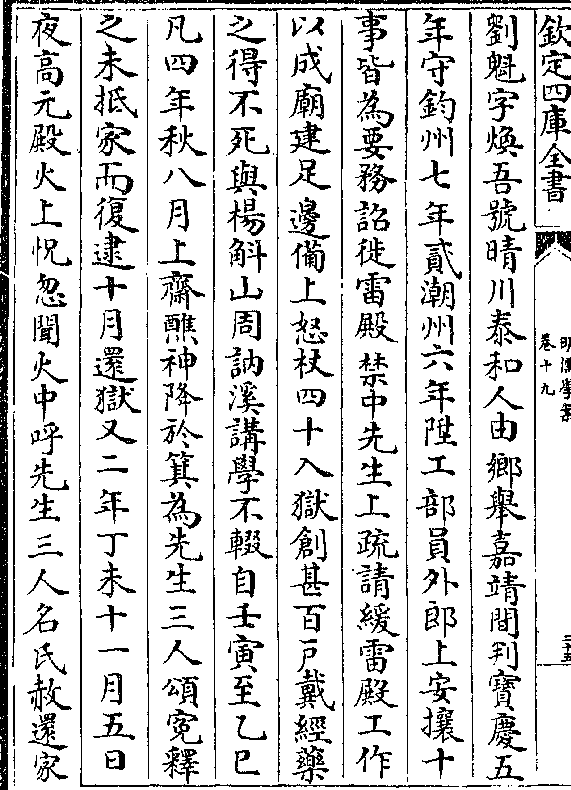 欽定四庫全書
明儒學案
卷十九
二十五
劉魁字煥吾號晴川泰和人由鄉舉嘉靖間判寶慶五
年守鈞州七年貳潮州六年陞工部員外郎上安攘十
事皆為要務詔徙雷殿禁中先生上疏請緩雷殿工作
以成廟建足邊備上怒杖四十入獄創甚百戶戴經藥
之得不死與楊斛山周訥溪講學不輟自壬寅至乙巳
凡四年秋八月上齋醮神降於箕為先生三人頌寃釋
之未抵家而復逮十月還獄又二年丁未十一月五日
夜高元殿火上怳忽聞火中呼先生三人名氏赦還家